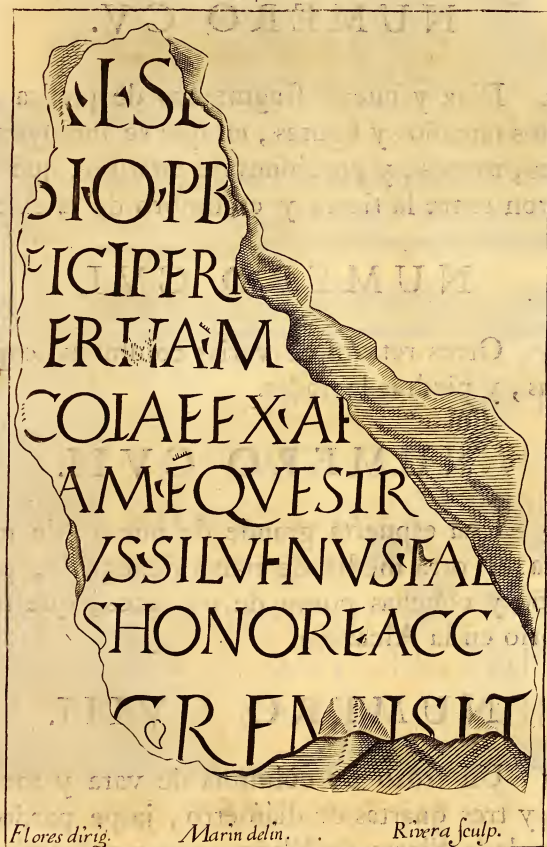 ALSE
SIO·PB
FICIPERI
ERITAM
COLAEEX·AF
AM·EQVESTR
VS·SILVENVS·FAL
SHONOREACC
REMISIT
Flores dirig.
Marin delin.
Rivera sculp.